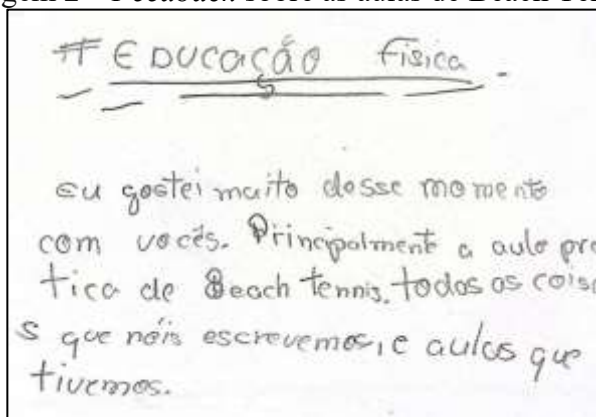 # EDUCAÇÃO Física.
Eu gostei muito desse momento
com vocês. Principalmente a aula pra
tica de Beach tennis, todas as coisa
s que nóis escrevemos, e aulas que
tivemos.